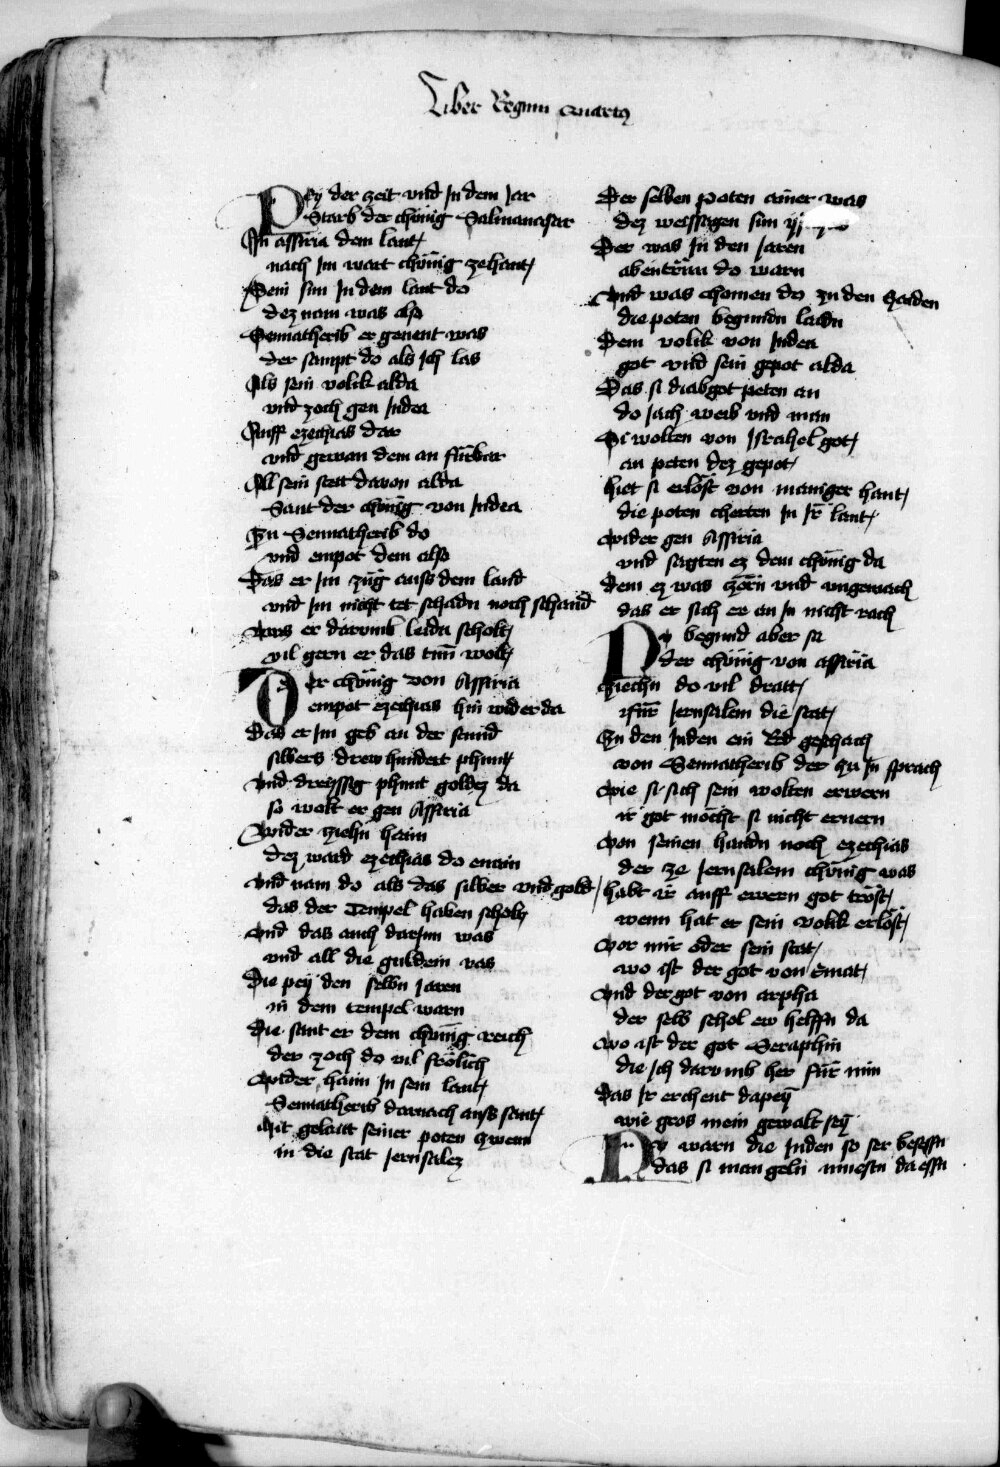 Liber Regum Quartus
Pey der zeit vnd In dem Jar
Starb der chönig Salmanasar
In assiria dem lant/
nach Im wart chönig zehant/
Sein sun In dem lant do
dez nam was also
Sennatherib er genent was
der sampt do als Ich las
Als sein volik alda
vnd zoch gen Judea
Auff ezechias dar
vnd gewan dem an fürbar
All sein stett dauon alda
Sant der chönig von Judea
Zu Sennatherib do
vnd enpot dem also
Das er Im züg auss dem land
vnd Im nicht tet schadn noch schand
Was er darumb leidn scholt/
vil gern er das tun wolt/
Der chönig von Assiria
empot ezechias hin wider da
Das er Im geb an der stund
silbers drew hundert phunt/
vnd dreyssig phunt goldez da
so wolt er gen Assiria
Wider ziehn haim
dez ward ezechias do enain
vnd nam do als das silber vnd gold/
das der Tempel haben scholt
vnd das auch darInn was
vnd all die guldein vas
Die pey den selbn Jaren
in dem tempel warn
die sant er dem chönig reich
der zoch do vil frölich
Wider haim In sein lant/
Sennatherib darnach auss sant/
Mit gelait seiner poten zwenn
in die stat Jerusalez
Der selben poten ainer was
dez weissagen sun
Der was In den Jaren
abentrün do warn
Vnd was chomen do zu den haiden
die poten begundn ladn
Dem volik von Judea
got vnd sein gepot alda
Das si diabgot peten an
do Jach weib vnd man
Si wolten von Israhel got/
an peten dez gepot/
hiet si erlöst von maniger hant/
die poten cherten In Ir lant/
Wider gen Assiria
vnd sagten ez dem chönig da
Dem ez was zorn vnd vngemach
das er sich er an In nicht rach
Nv begund aber sa
der chönig von assiria
Ziechn do vil dratt/
für Jerusalem die stat/
Zu den Juden ein Red geschach
von Sennatherib der zu In sprach
Wie si sich sein wolten erwern
ir got möcht si nicht ernern
Von seinen handn noch ezechias
der ze Jerusalem chönig was
habt ir auff ewern got tröst/
wenn hat er sein volik erlöst/
Vor mir oder sein stat/
wo ist der got von Emat/
Vnd der got von arpha
der selb schol ew helffn da
Wo ist der got Seraphin
die Ich darumb her für min
Das Ir erchent dapey
wie gros mein gewalt sey
Nv warn die Juden so ser besessn
das si mangeln muestn da essn